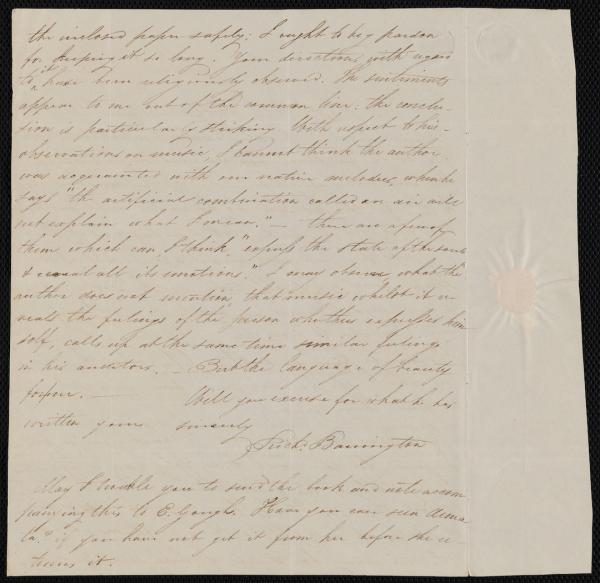 the inclosed paper safely; I ought to beg pardon
for keeping it so long. Your directions with regard
to it have been religiously observed. The sentiments
appear to me out of the common line: the conclu-
sion is particularly striking. With respect to his
observations on music, I cannot think the author
was acquainted with our native melodies, when he
says "the artificial combination called an air will
not explain what I mean." — there are a few of
them which can, I think, "express the state of the soul
& reveal all its emotions." I may observe what the
author does not mention, that music whilst it re-
veals the feelings of the person who thus expresses him
self, calls up at the same time similar feelings
in his auditors. — But the language of beauty
for ever. —
Will you excuse for what he has
written yours sincerely
Richd. Barrington
May I trouble you to send the book and note accom
panying this to E. Gough. Have you ever seen
if you have not get it from her before she re
turns it.